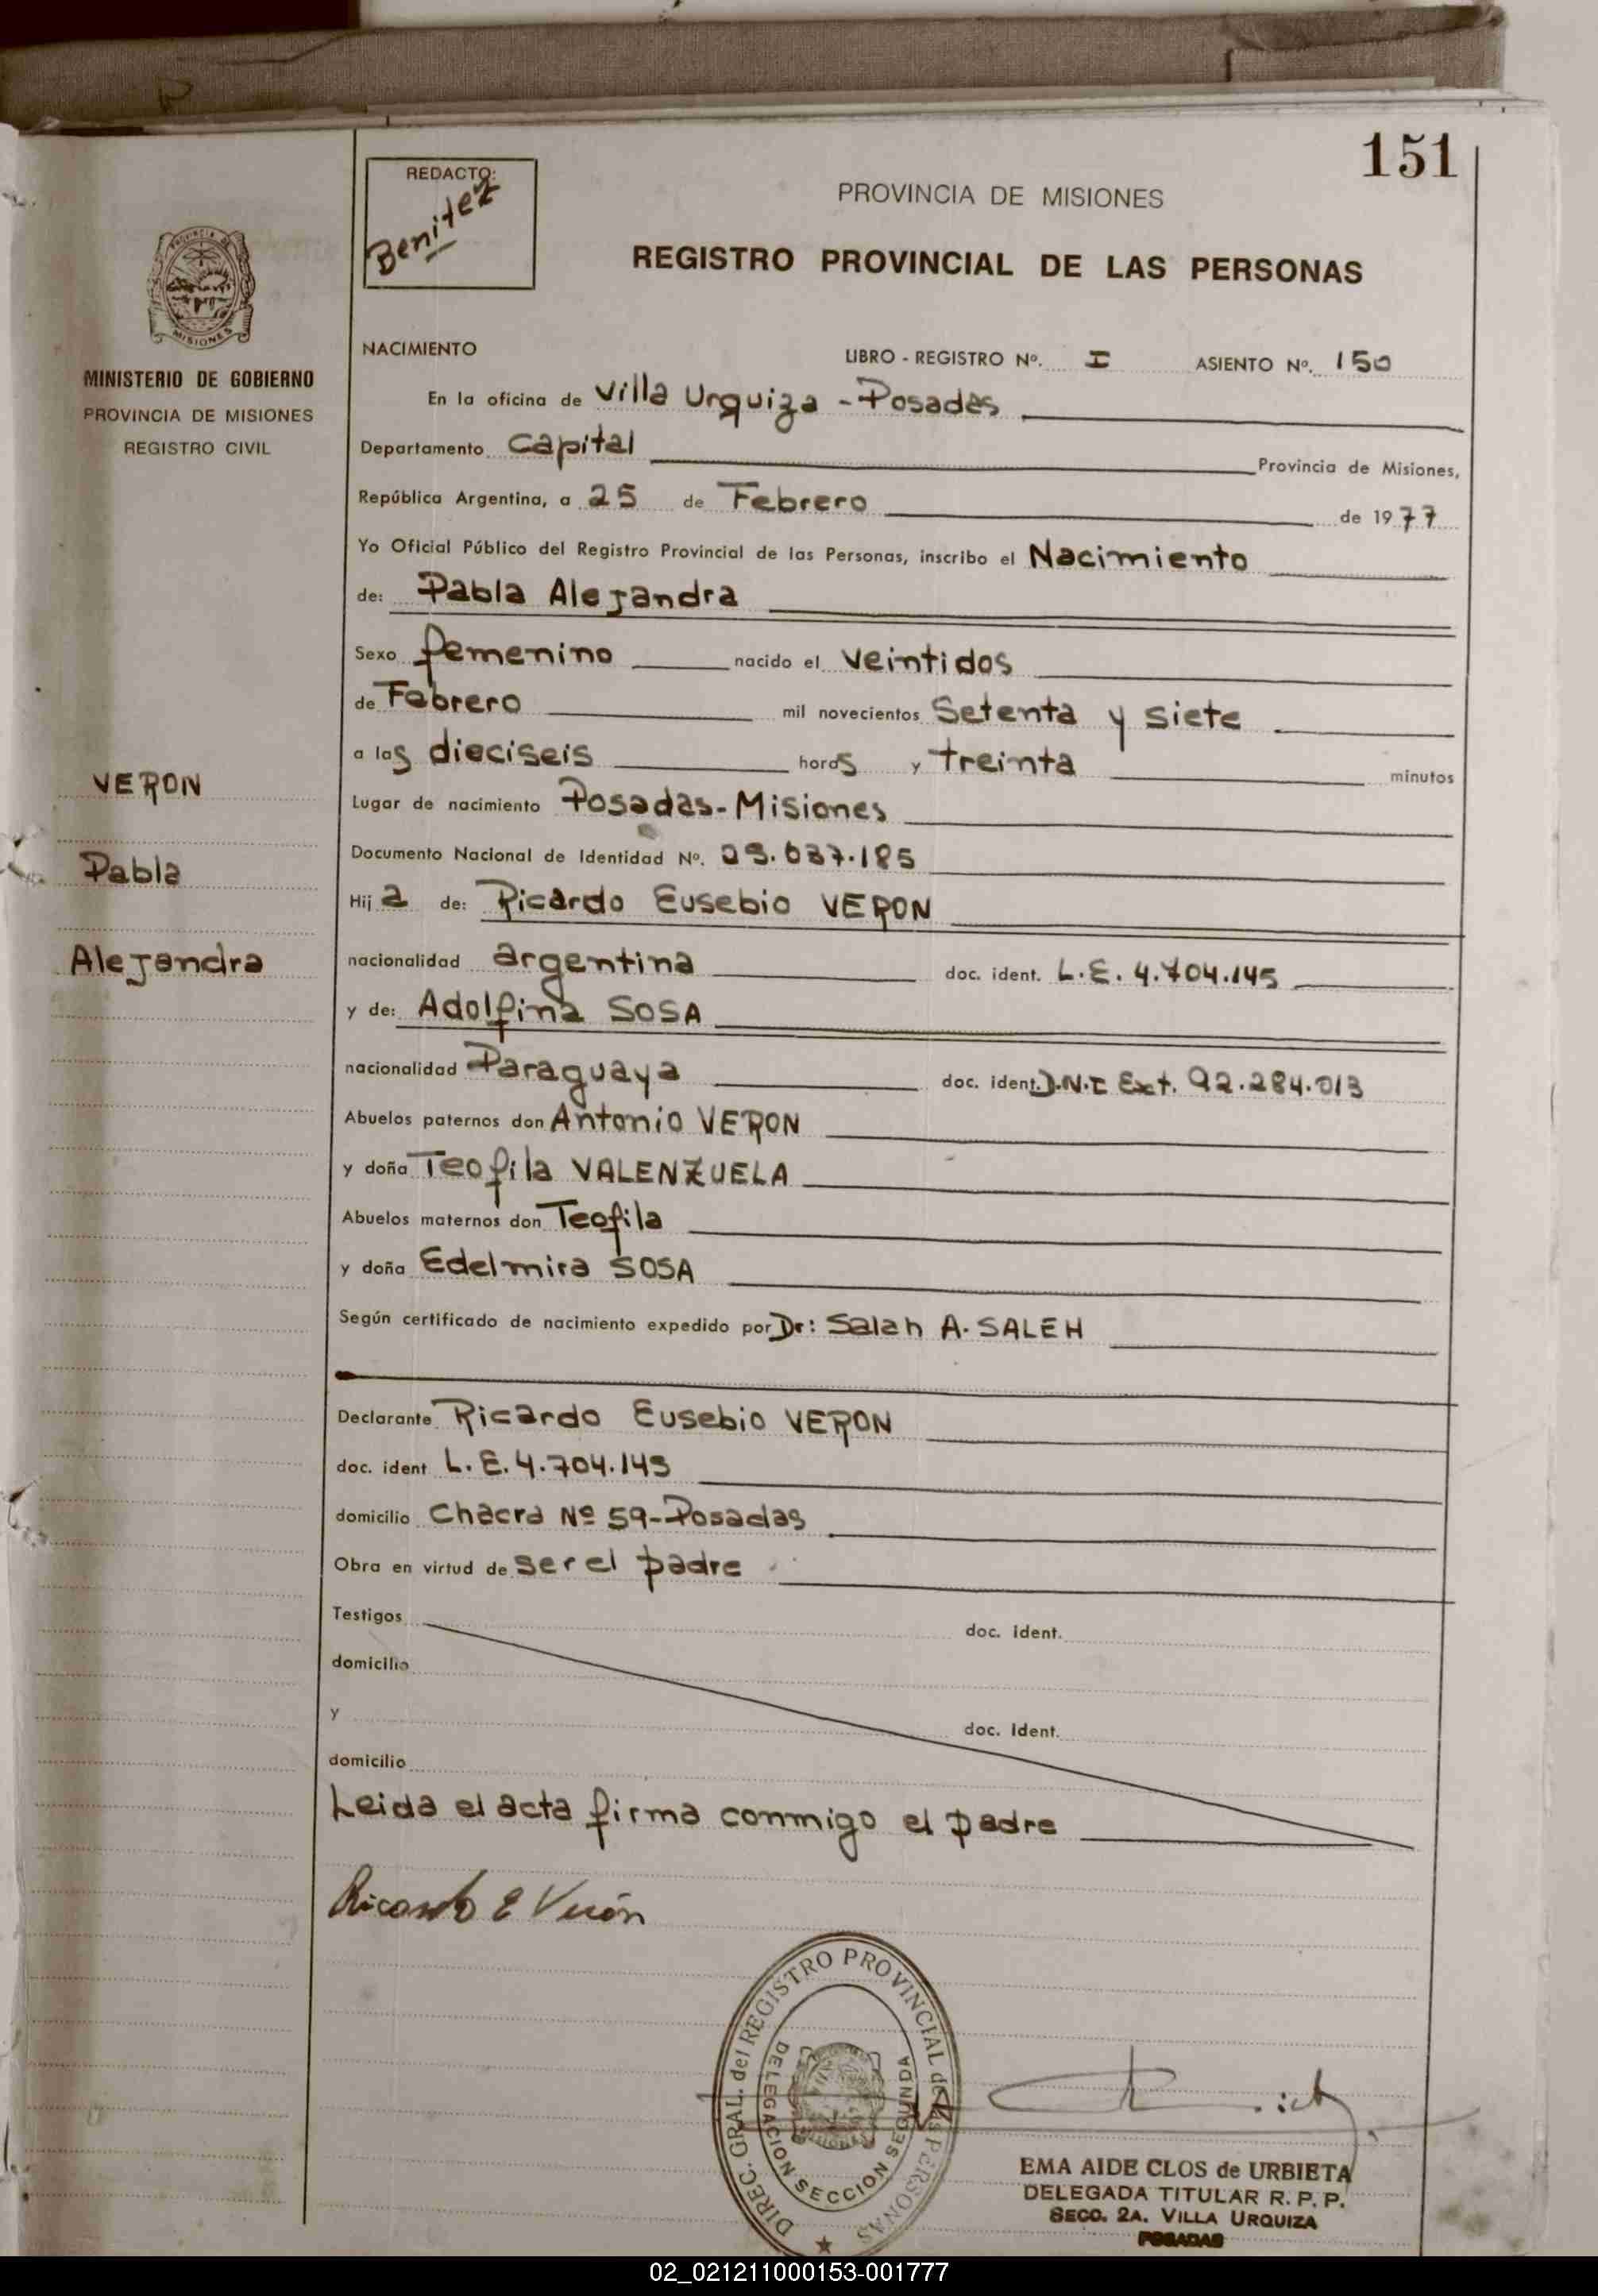 151
REDACTO:
Benitez
PROVINCIA DE MISIONES
REGISTRO PROVINCIAL DE LAS PERSONAS
MISIONES
MINISTERIO DE GOBIERNO
PROVINCIA DE MISIONES
REGISTRO CIVIL
VERON
Pabla
Alejandra
NACIMIENTO LIBRO - REGISTRO Nº. I ASIENTO Nº. 150
En la oficina de Villa Urquiza - Posadas
Departamento Capital Provincia de Misiones,
República Argentina, a 25 de Febrero de 1977
Yo Oficial Público del Registro Provincial de las Personas, inscribo el Nacimiento
de: Pabla Alejandra
Sexo femenino nacido el veintidos
de Febrero mil novecientos Setenta y siete
a las dieciseis horas y treinta minutos
Lugar de nacimiento Posadas-Misiones
Documento Nacional de Identidad Nº.
Hija de: Ricardo Eusebio VERON
nacionalidad argentina doc. ident. L.E. 4.704.145
y de: Adolfina SOSA
nacionalidad Paraguaya doc. ident. D.N.I Ext. 92.284.013
Abuelos paternos don Antonio VERON
y doña Teofila VALENZUELA
Abuelos maternos don Teofila
y doña Edelmira SOSA
Según certificado de nacimiento expedido por Dr: Salah A. SALEH
Declarante Ricardo Eusebio VERON
doc. ident L.E. 4.704.145
domicilio Chacra Nº 59-Posadas
Obra en virtud de ser el padre
Testigos doc. ident.
domicilio
y doc. Ident.
domicilio
Leida el acta firma conmigo el padre
Ricardo E Verón
DIREC. GRAL. del REGISTRO PROVINCIAL de las PERSONAS
DELEGACION SECCION SEGUNDA
EMA AIDE CLOS de URBIETA
DELEGADA TITULAR R. P. P.
SECC. 2A. VILLA URQUIZA
POSADAS
02_021211000153-001777